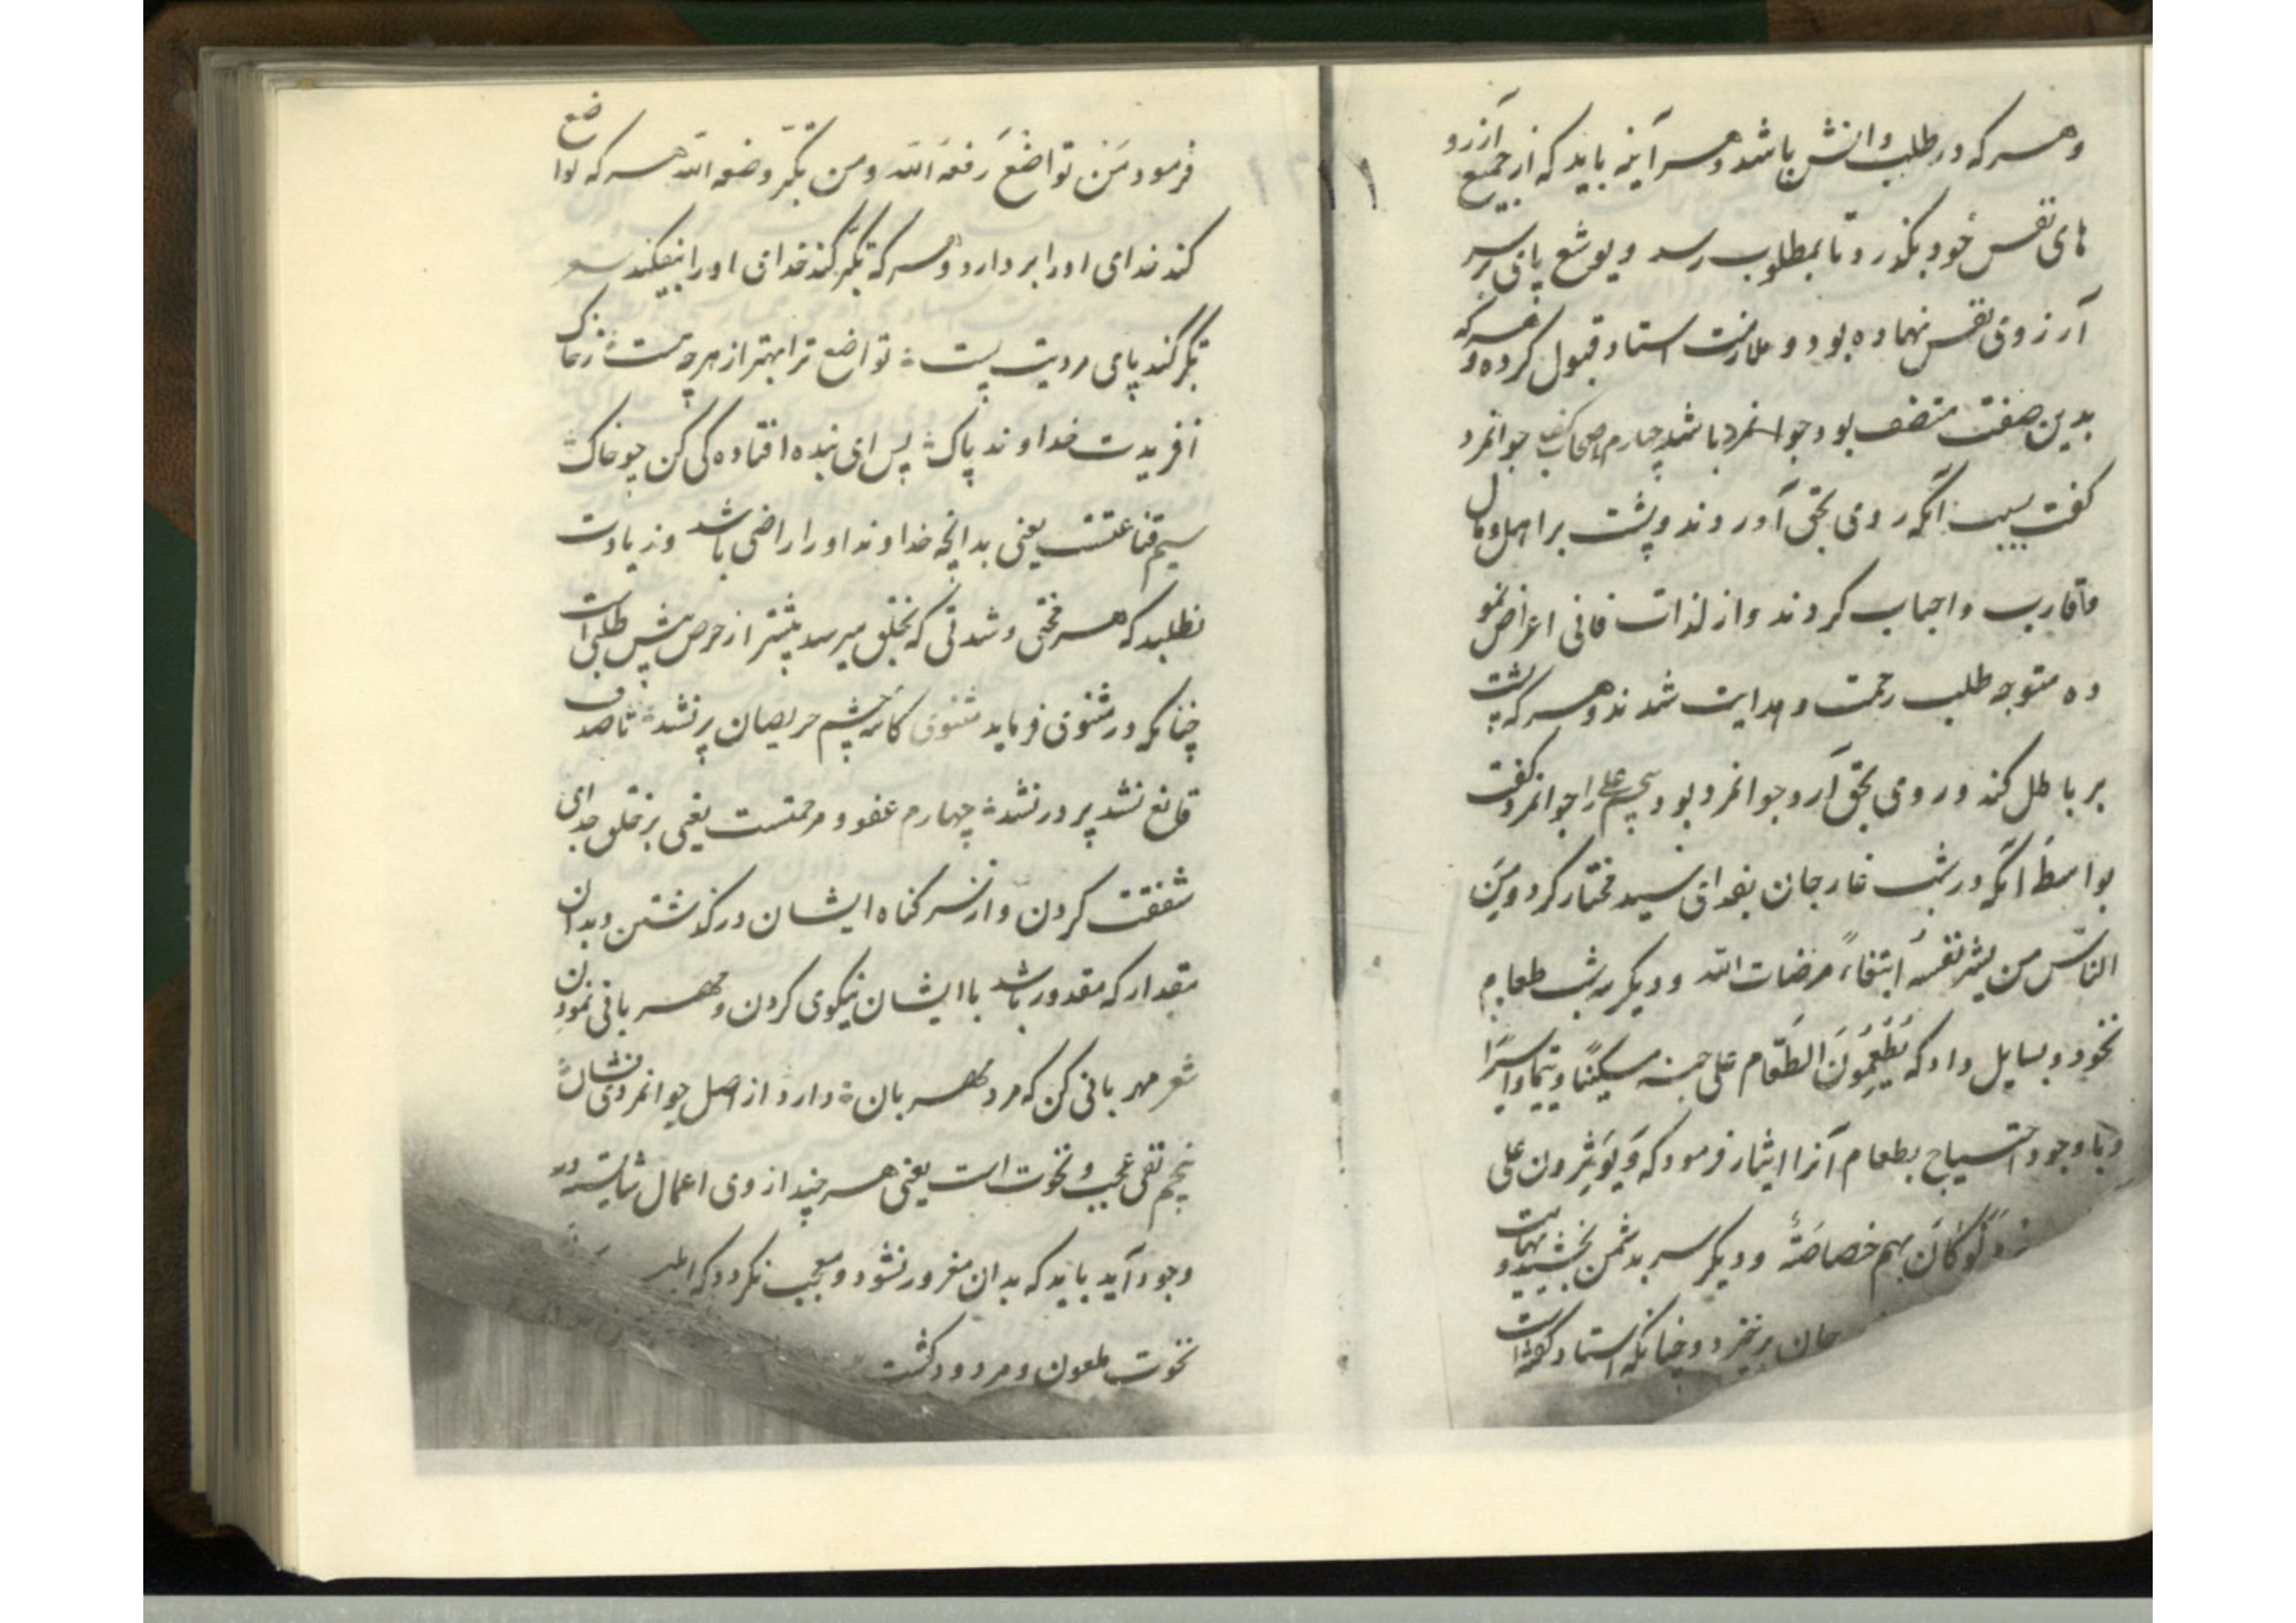 وهسر که در طلب دانش باشد وهسر آینه باید که از جمیع آرزو
های نفس خود بگذرد تا بمطلوب رسد ویوشع پای بر سر
آرزوی نفس نهاده بود و ملازمت استاد قبول کرده و هرکه
بدین صفت متصف بود جوانمرد باشد چهارم اصحاب کهف جوانمرد
گفت بسبب آنکه روی بحق آوردند و پشت بر اهل و مال
واقارب واحباب کردند واز لذات فانی اعراض نمو
ده متوجه طلب رحمت و هدایت شدند وهسر که پشت
بر باطل کند و روی بحق آرد جوانمرد بود پنجم علی را جوانمرد گفت
بواسطهٔ آنکه در شب غار جان بفدای سید مختار کرد ومِنَ
الناس من یشری نفسه ابتغاء مرضات الله و دیگر سه شب طعام
نخورد وبسایل داد که یُطْعِمُونَ الطَّعام علی حبه مسکینًا ویتیمًا واسیرًا
وباوجود احتیاج بطعام آنرا ایثار فرمود که وَیُؤثِرون علی
وَلَوْ کانَ بهم خصاصَةٌ و دیگر سر بدشمن بخشید و
جان برنخیزد وچنانکه استاد گفته است
فرمود مَن تواضعَ رفعهُ الله ومن تکبّر وضعه الله هسر که تواضع
کند خدای اورا بردارد وهسر که تکبّر کند خدای اورا بیفکند شعر
تکبر کند پای مردیت پست تواضع ترا بهتر از هرچه هست ز خاک
آفریدت خداوند پاک پس ای بنده افتاده کی کن چو خاک
سیم قناعتست یعنی بدانچه خداوند اورا راضی باشد وزیادت
نطلبد که هسر محنتی و شدتی که بخلق میرسد بیشتر از حرص وبیش طلبی است
چنانکه در مثنوی فرماید مثنوی کاسهٔ چشم حریصان پر نشد تا صدف
قانع نشد پر در نشد چهارم عفو و مرحمتست یعنی بر خلق خدای
شفقت کردن واز سر کناه ایشان در گذشتن وبدان
مقدار که مقدور باشد با ایشان نیکوی کردن و مهسربانی نمودن
شعر مهربانی کن که مرد مهسربان دارد از اصل جوانمردی نشان
پنجم نفی عجب و نخوت است یعنی هسر چند از وی اعمال شایسته در
وجود آید باید که بدان مغرور نشود و معجب نکردد که ابلیس
نخوت ملعون و مردود گشت